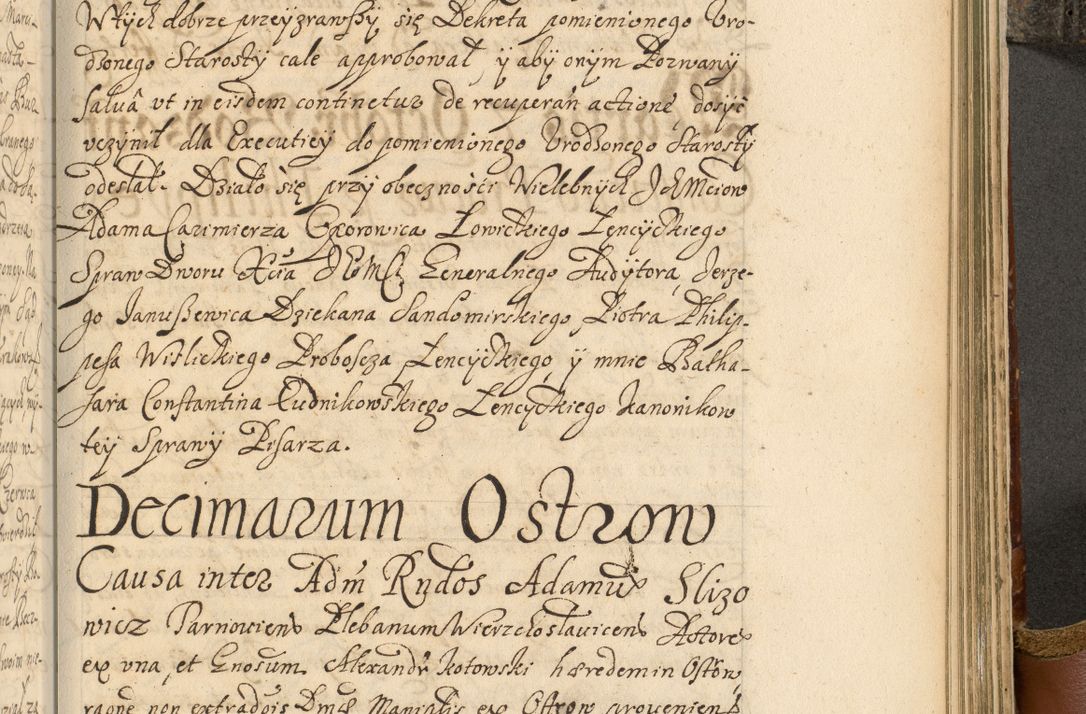 Wtych dobrze przeyzrawszy się Dekreta pomienionego Uro-
dzonego Starosty cale approbował, y aby onym Pozwany
salvâ vt in eisdem continetur de recuperań actione, dosyć
vczynił dla Executiey do pomienionego Vrodzonego Starosty
odesłał. Działo się przy obecznosci Wielebnych JchMciow
Adama Cazimierza Oporowica Łowickiego Łencyckiego
Spraw Dworu Xcia JeoMCi Generalnego Audytora, Jerze-
go Januszewica Dziekana Sandomirskiego, Piotra Philip-
pesa Wislickiego Proboscza Łencyckiego, y mnie Baltha-
sara Constantina Ludnikowskiego Łencyckiego Kanonikow
tey Sprawy Pisarza.
Decimarum Ostrow
Causa inter Adm Rndos Adamu Slizo
wicz Tarnoviens Plebanum Wierzchoslavicens Actore
ex vna, et Gnosum Alexandr Kotowski hæredem in Ostrow,
raone non extradois Dmæ Manipulis ex Ostrow provenien